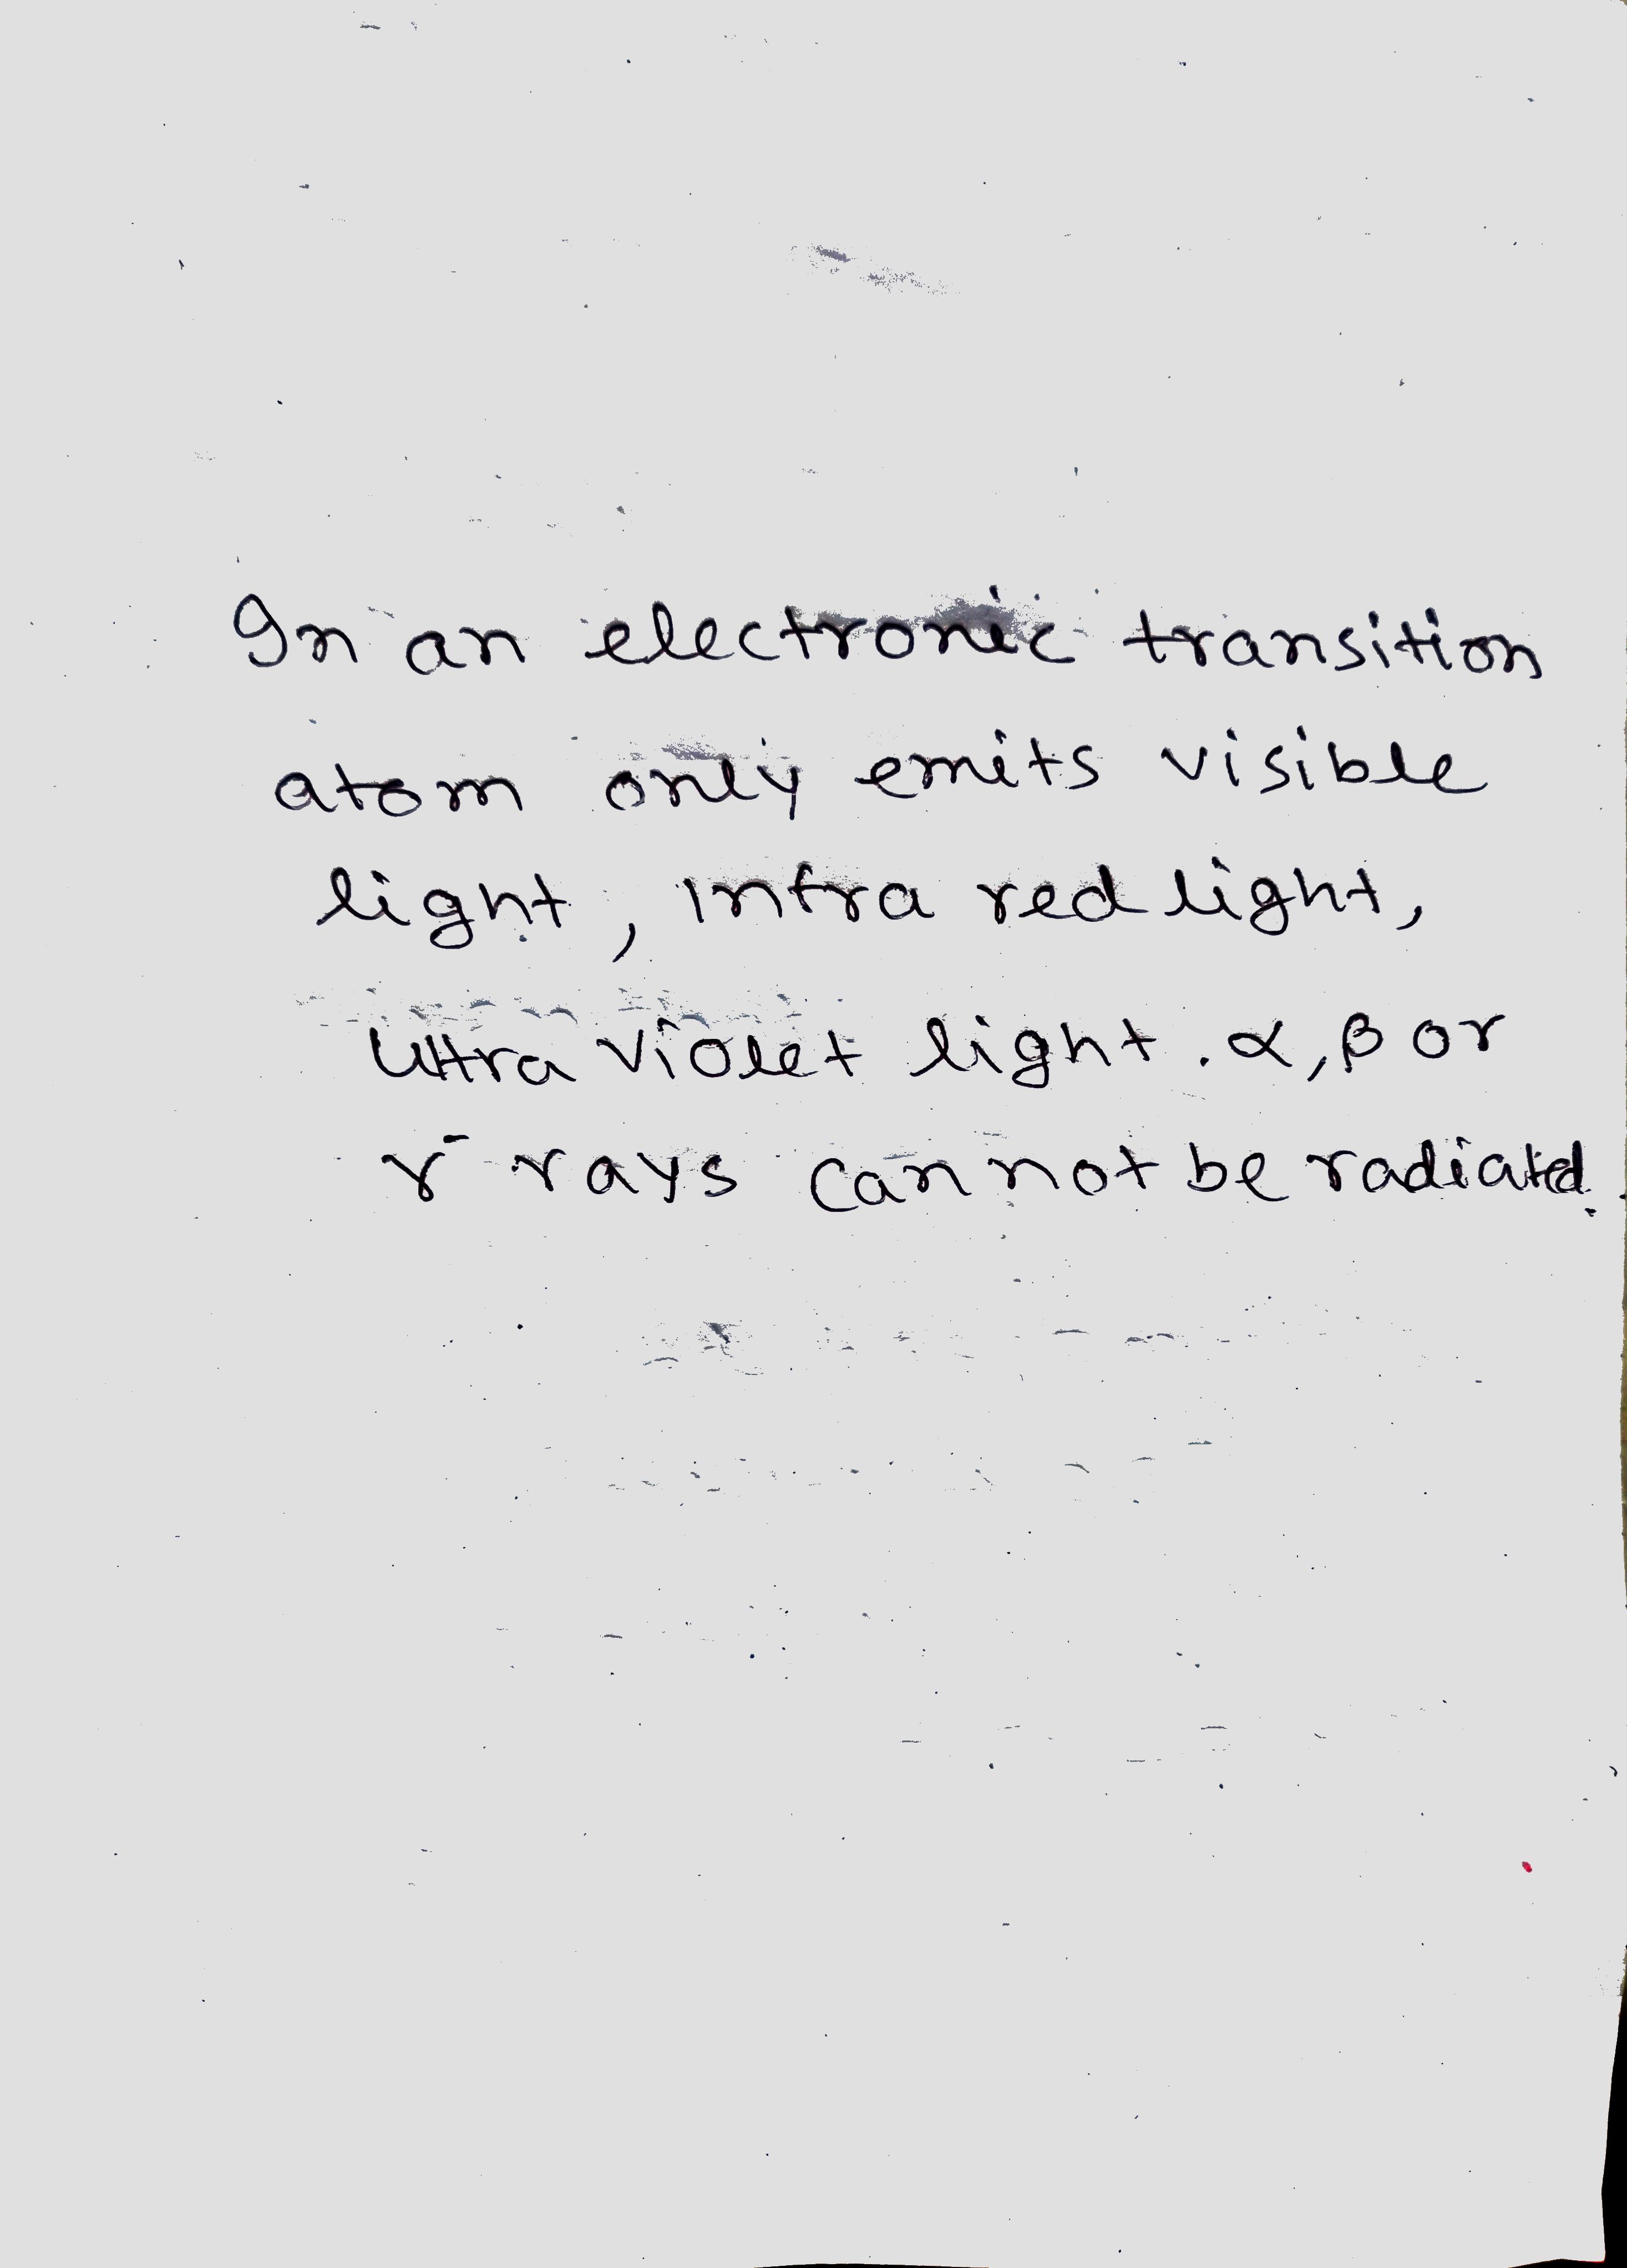 In an electronic transition
atom only emits visible
light, Infra red light,
Ultra violet light. α, β or
γ- rays cannot be radiated.